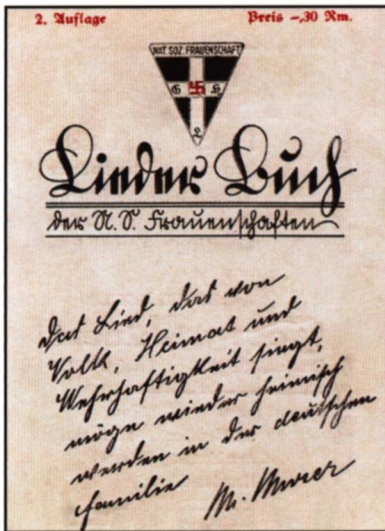 2. Auflage
Preis -,30 Rm.
NAT. SOZ. FRAUENSCHAFT
G H
L
Lieder Buch
der N.S. Frauenschaften
Das Lied, das von
Volk, Heimat und
Wehrhaftigkeit singt,
möge wieder heimisch
werden in der deutschen
Familie
M.